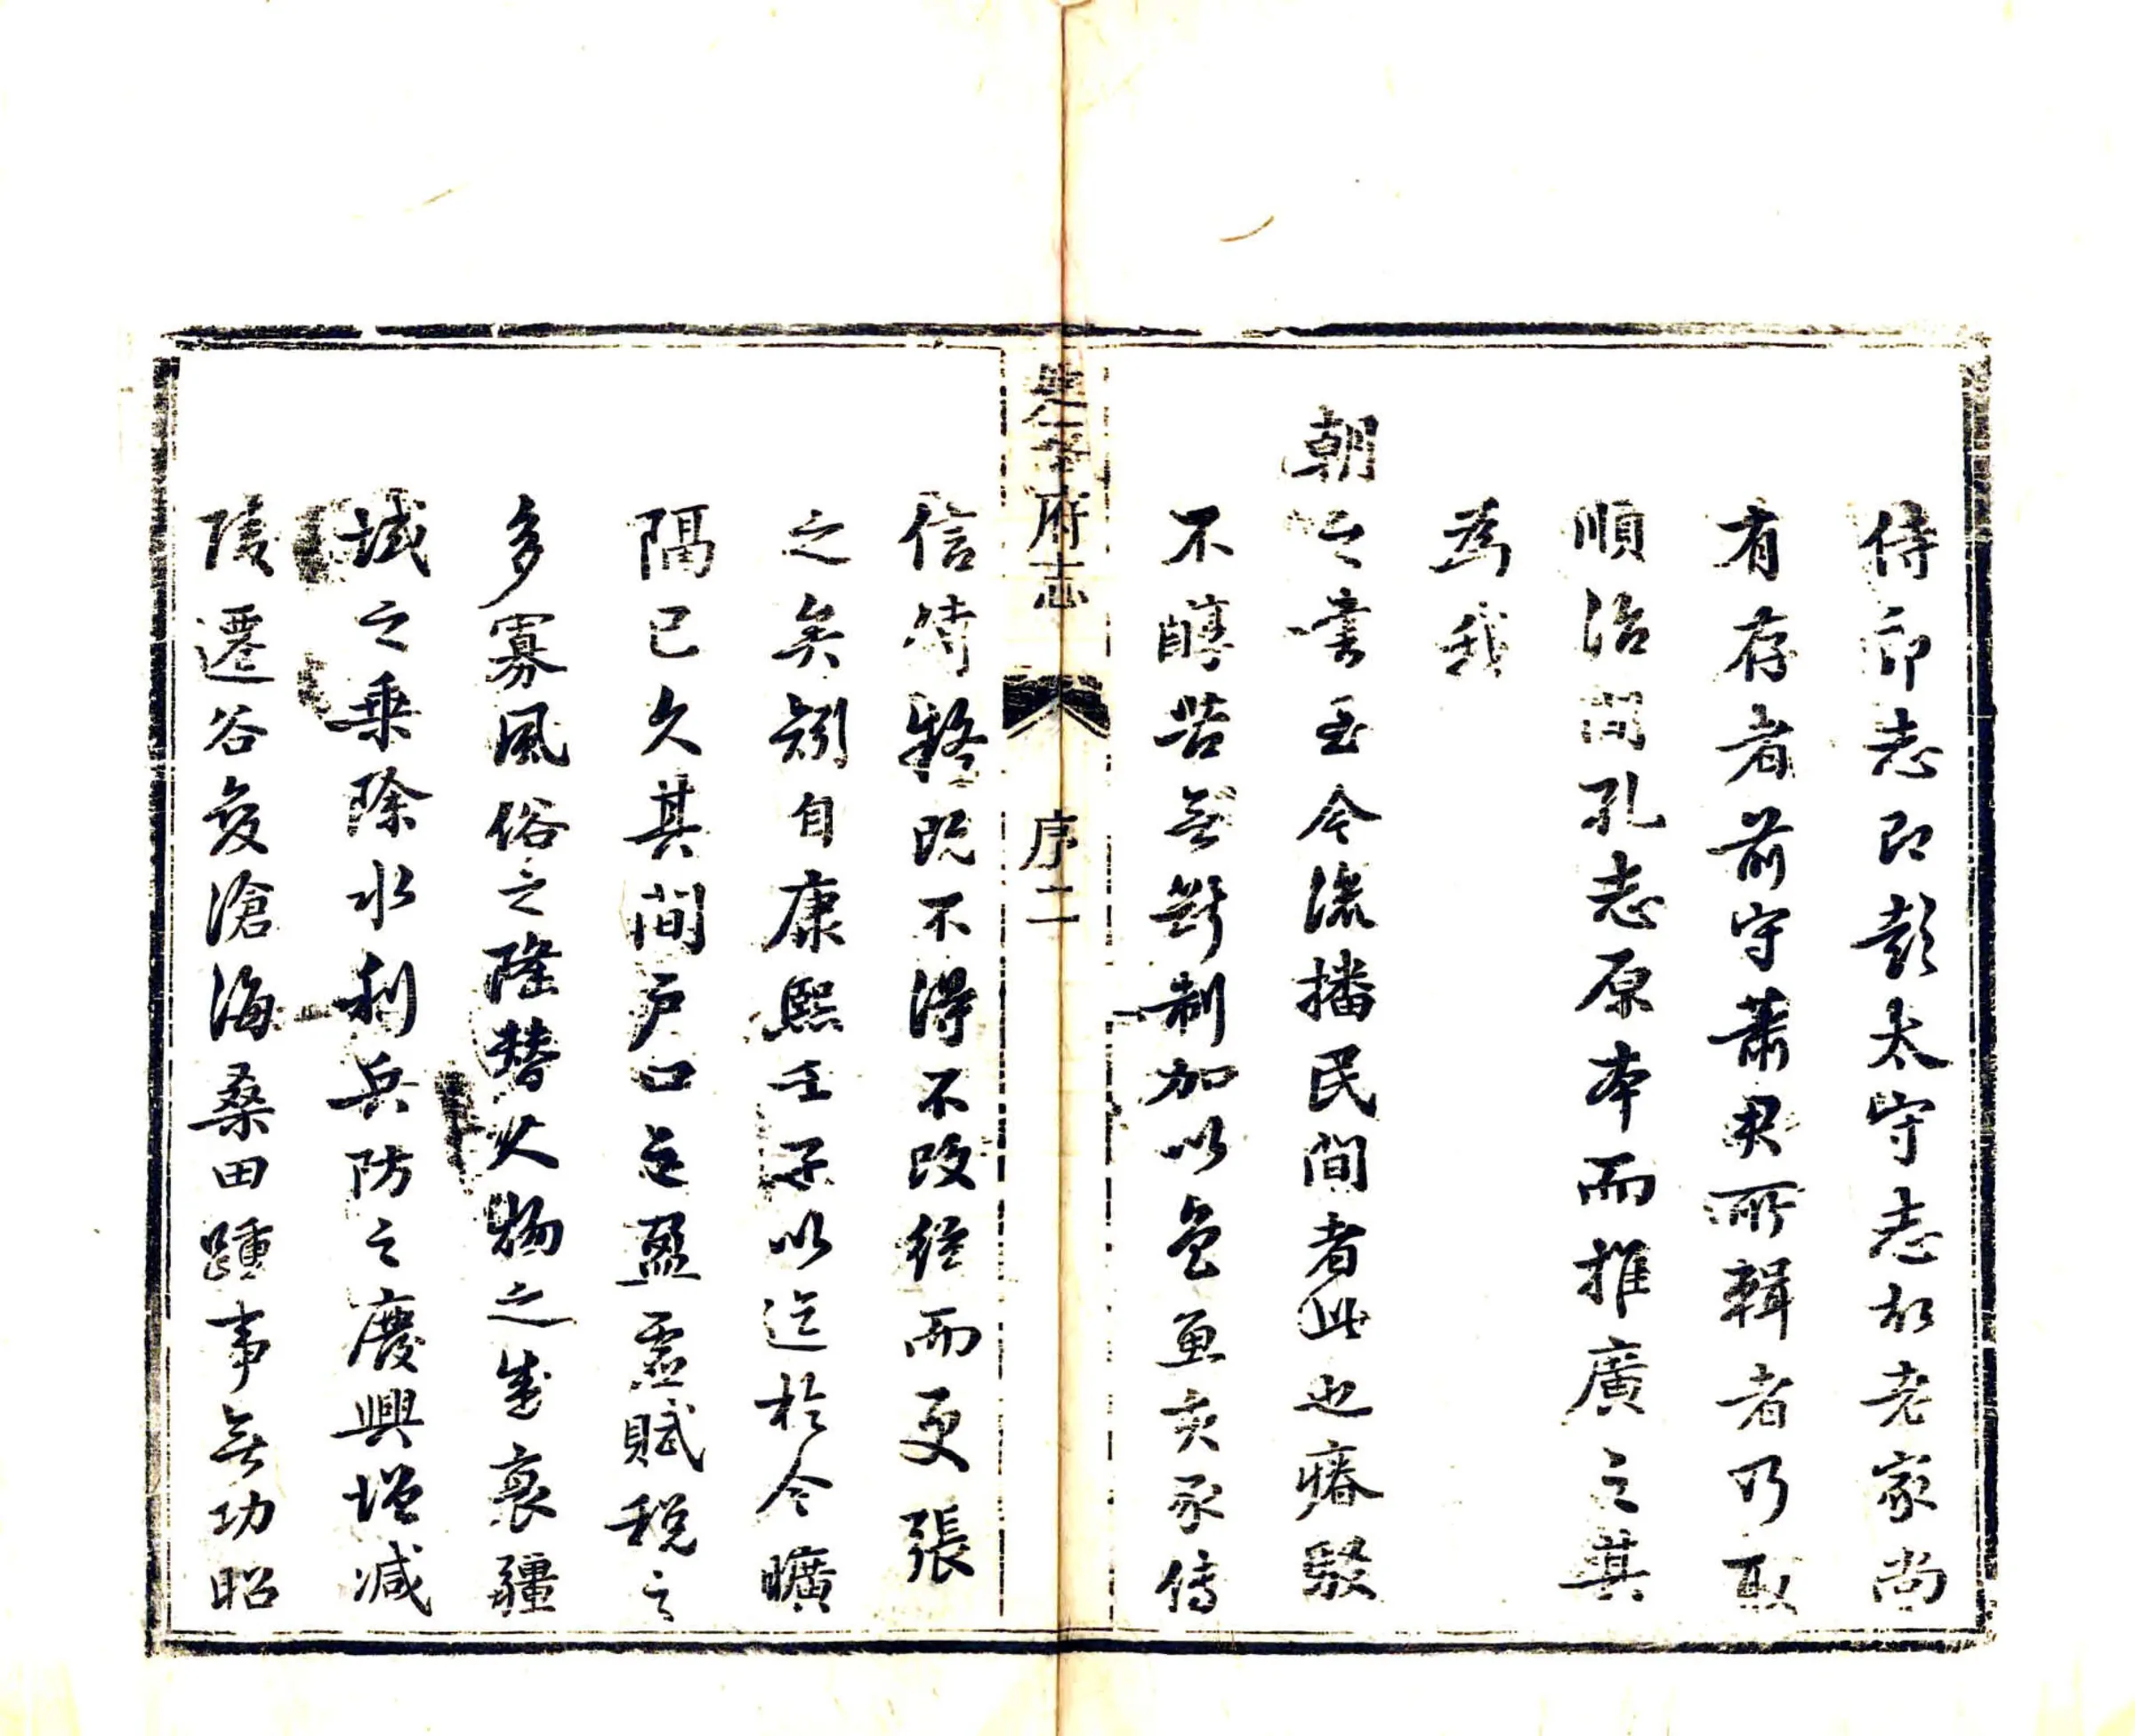 侍郎志即彭太守志故老家尚
有存者前守蕭君所輯者乃取
順治間孔志原本而推廣之其
為我
朝之書至今流播民間者此也瘠駁
不醇苦無斷制加以魯魚亥豕傳
建寧府志 序二
信待疑既不得不改絃而更張
之矣矧自康熙壬子以迄於今曠
隔已久其間戶口之盈虛賦稅之
多寡風俗之隆替人物之盛衰疆
域之乘除水利兵防之廢興增減
陵遷谷變滄海桑田踵事無功昭